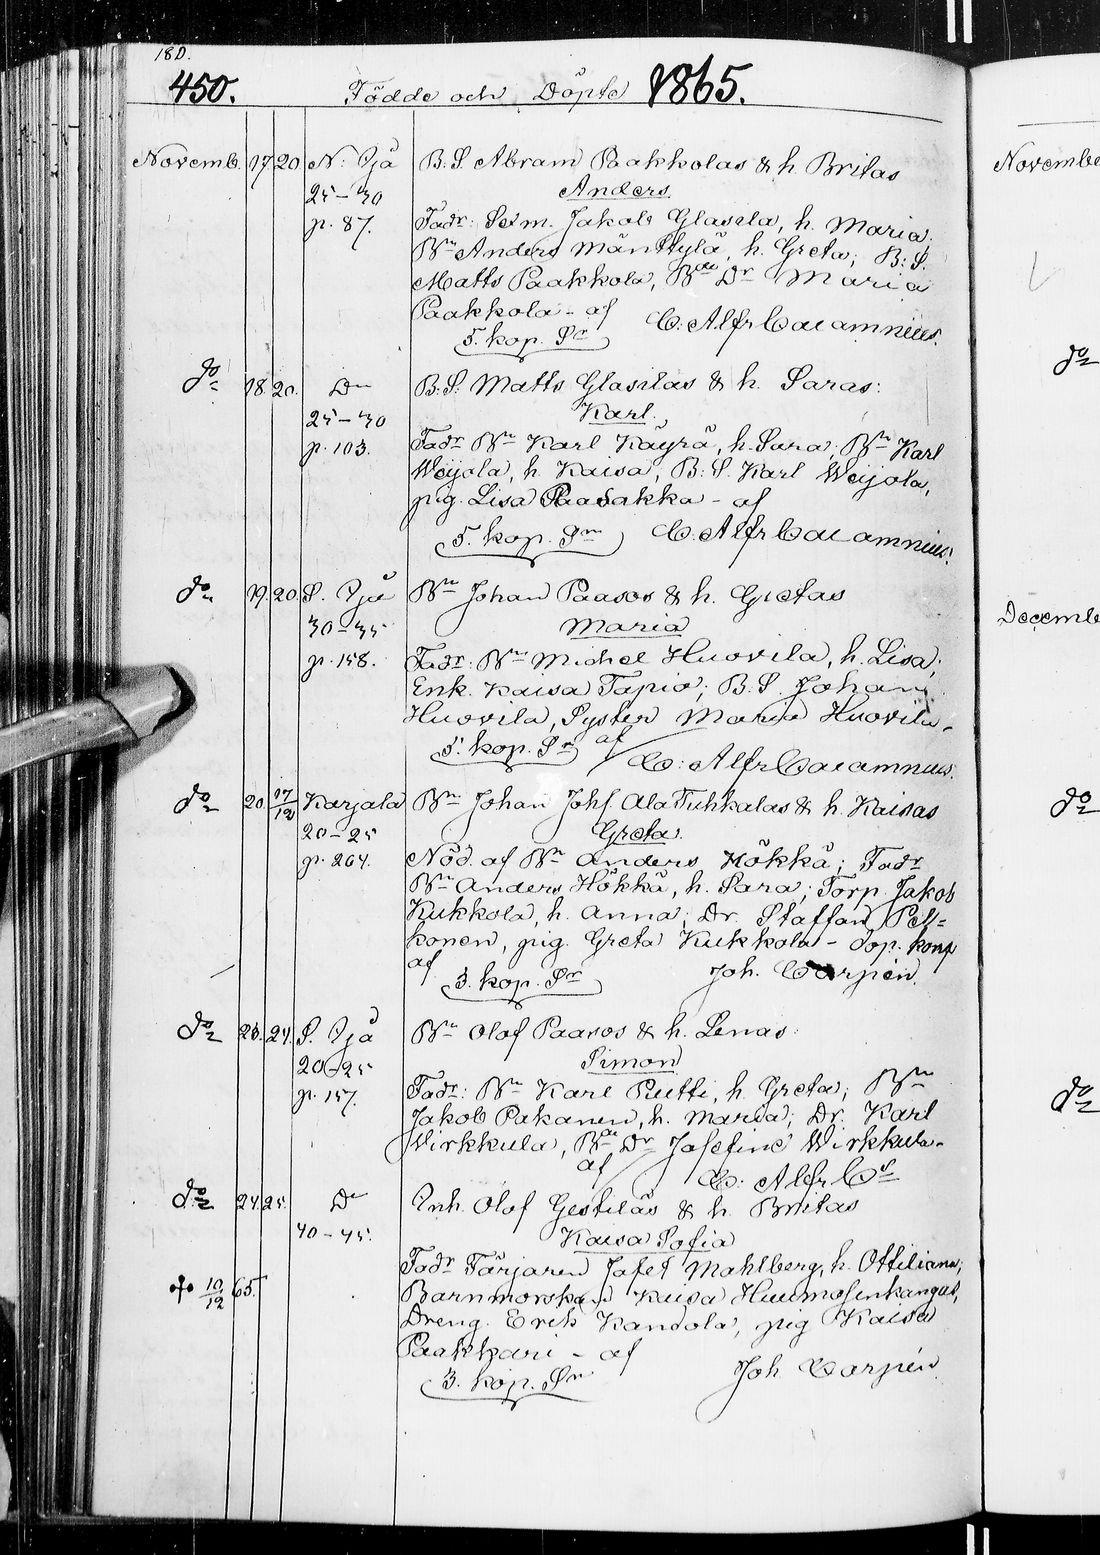 18D.
450. Födde och Döpte 1865.
Novemb. 17. 20. N: Ijå B: S. Abram Paakkolas & h. Britas
25–30 Anders.
p. 87. Fadr: Sexm. Jakob Glasila, h. Maria.
Bn Anders Mänttylä, h. Greta; B: S.
Matts Paakkola, Bde Dr Maria
Paakkola – af
5. kop. Sr C: Alfr Calamnius.
do 18. 20. Do B: S: Matts Glasilas & h. Saras:
25–30 Karl.
p. 103. Fadr Bn Karl Käyrä, h. Sara; Bn Karl
Weijola, h. Kaisa, B: S. Karl Weijola,
pig. Lisa Paasakka – af
5. kop. Sr C. Alfr Calamnius.
do 19. 20. S. Ijå Bn Johan Paasos & h. Gretas
30–35 Maria
p. 158. Fadr: Bn Michel Huovila, h. Lisa;
Enk. Kaisa Tapio; B: S. Johan
Huovila, Syster Maria Huovila –
5. kop. Sr af C: Alfr Calamnius.
do 20. 17/12 Karjala Bn Johan Johs. AlaTuhkalas & h. Kaisas
20–25 Greta.
p. 204. Nöd. af Bn Anders Hökkä; Fadr
Bn Anders Hökkä, h. Sara; Torp. Jakob
Kukkola, h. Anna; Dr. Staffan Pel-
konen, pig. Greta Kukkola – dop. konf
af 3. kop. Sr Joh. Carpén.
do 23. 24. S. Ijå Bn Olof Paasos & h. Lenas:
20–25 Simon
p. 157. Fadr: Bn Karl Putti, h. Greta; Bn
Jakob Pakanen, h. Maria; Dr. Karl
Wirkkula, Bde Dr Josefine Wirkkula –
af C: Alfr Cs
do 24. 25. Do Inh. Olof Gestiläs & h. Britas
40–45. Kaisa Sofia
Fadr Färjaren Jafet Mahlberg, h. Ottiliana;
10/12 65. Barnmorskan Kaisa Huumosenkangas,
Dreng. Erik Kandola, pig Kaisa
Paakkari – af
3. kop. Sr Joh Carpén
Novembe
do
Decembe
do
do